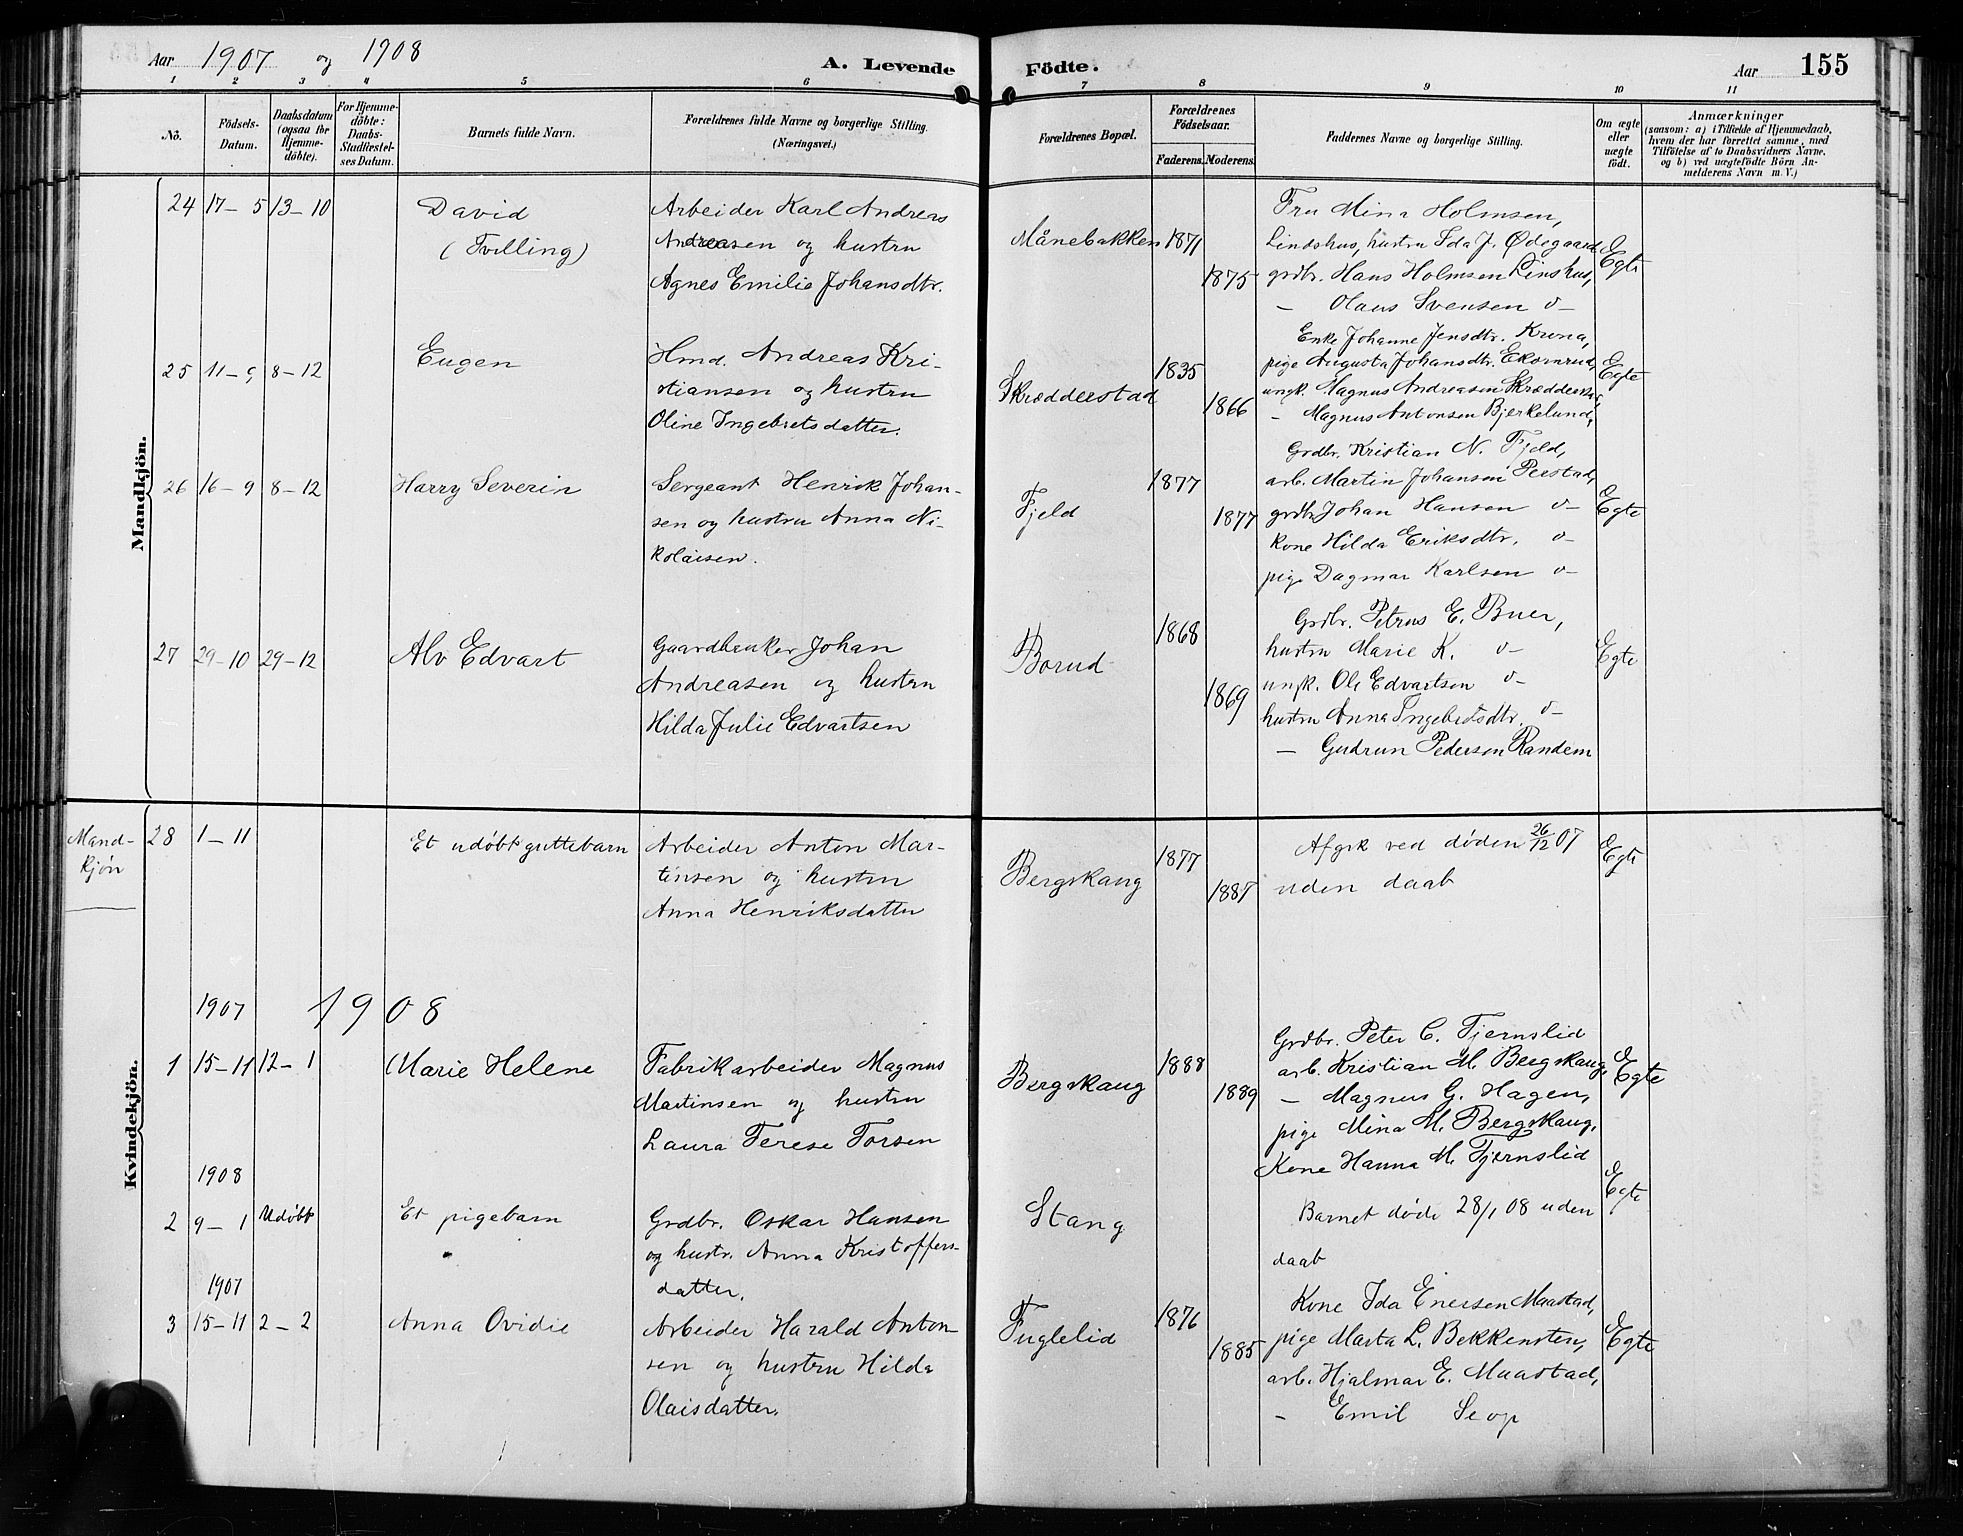 Aar 1907 og 1908
A. Levende Födte.
Aar 155
1 2 3 4 5 6 7 8 9 10 11
No.
Födsels-Datum.
Daabsdatum (ogsaa for Hjemme-döbte).
For Hjemme-döbte: Daabs-Stadfæstel-ses Datum.
Barnets fulde Navn.
Forældrenes fulde Navne og borgerlige Stilling. (Næringsvei.)
Forældrenes Bopæl.
Forældrenes Födselsaar.
Faderens. Moderens.
Faddernes Navne og borgerlige Stilling.
Om ægte eller uægte födt.
Anmærkninger
(saasom: a) i Tilfælde af Hjemmedaab, hvem der har forrettet samme, med Tilföielse af to Daabsvidners Navne, og b) ved uægtefödte Börn An-melderens Navn m. V.)
Mandkjön.
24 17-5 13-10 David
(Tvilling)
Arbeider Karl Andreas
Andreasen og hustru
Agnes Emilie Johansdtr.
Månebakken 1871
1875
Fru Mina Holmsen,
Lindshus, hustru Ida J. Ødegaard
grdbr. Hans Holmsen Linshus,
— Olaus Svensen d—
Egte
25 11-9 8-12 Eugen
Hmd. Andreas Kri-
stiansen og hustru
Oline Ingebretsdatter.
Skrædderstad 1835
1866
Enke Johanne Jensdtr. Krona,
pige Augusta Johansdtr. Ekornrud,
ungk. Magnus Andreasen Skrædderstad,
— Magnus Antonsen Bjerkelund,
Egte
26 16-9 8-12 Harry Severin
Sergeant Henrik Johan-
sen og hustru Anna Ni-
kolaisen.
Fjeld 1877
1877
Grdbr. Kristian N. Fjeld,
arb. Martin Johansen Perstad,
grdbr. Johan Hansen d—
kone Hilda Eriksdtr. d—
pige Dagmar Karlsen d—
Egte
27 29-10 29-12 Alv Edvart
Gaardbruker Johan
Andreasen og hustru
Hilda Julie Edvartsen
Borud 1868
1869
Grdbr. Petrus E. Buer,
hustru Marie K. d—
ungk. Ole Edvartsen d—
hustru Anna Ingebretsdtr. d—
— Gudrun Pedersen Randem
Egte
Mand-
kjön
28 1-11 Et udøbt guttebarn
Arbeider Anton Mar-
tinsen og hustru
Anna Henriksdatter
Bergskaug 1877
1887
Afgik ved døden 26/12 07
uden daab
Egte
1907 1908
Kvindekjön.
1 15-11 12-1 Marie Helene
Fabrikarbeider Magnus
Martinsen og hustru
Laura Terese Torsen
Bergskaug 1888
1889
Grdbr. Peter C. Tjernslid
arb. Kristian M. Bergskaug,
— Magnus G. Hagen,
pige Mina M. Bergskaug,
Kone Hanna M. Tjernslid
Egte
1908
2 9-1 Udøbt Et pigebarn
Grdbr. Oskar Hansen
og hustr. Anna Kristoffers-
datter.
Stang
Barnet døde 28/1 08 uden
daab
Egte
1907
3 15-11 2-2 Anna Ovidie
Arbeider Harald Anton
sen og hustru Hilda
Olaisdatter.
Fuglelid 1876
1885
Kone Ida Enersen Maastad,
pige Marta L. Bekkensten,
arb. Hjalmar E. Maastad,
— Emil
Egte